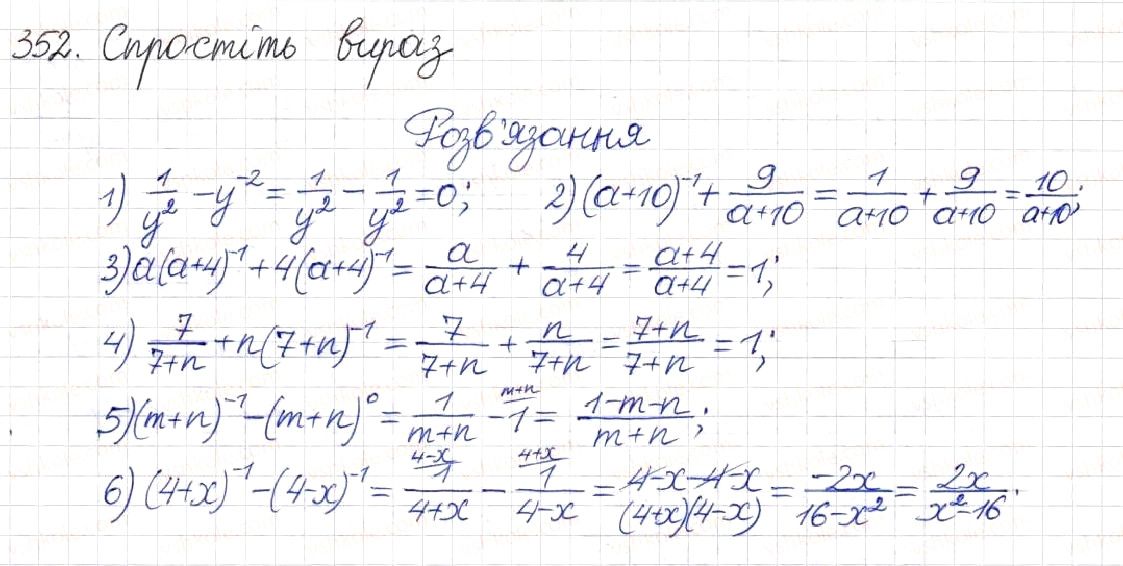 352. Спростіть вираз
Розв'язання
1) 1/y² - y⁻² = 1/y² - 1/y² = 0; 2) (a+10)⁻¹ + 9/(a+10) = 1/(a+10) + 9/(a+10) = 10/(a+10);
3) a(a+4)⁻¹ + 4(a+4)⁻¹ = a/(a+4) + 4/(a+4) = (a+4)/(a+4) = 1;
4) 7/(7+n) + n(7+n)⁻¹ = 7/(7+n) + n/(7+n) = (7+n)/(7+n) = 1;
5) (m+n)⁻¹ - (m+n)⁰ = 1/(m+n) - 1 ^(m+n) = (1-m-n)/(m+n);
6) (4+x)⁻¹ - (4-x)⁻¹ = ^(4-x) 1/(4+x) - ^(4+x) 1/(4-x) = (4-x-4-x)/((4+x)(4-x)) = -2x/(16-x²) = 2x/(x²-16).